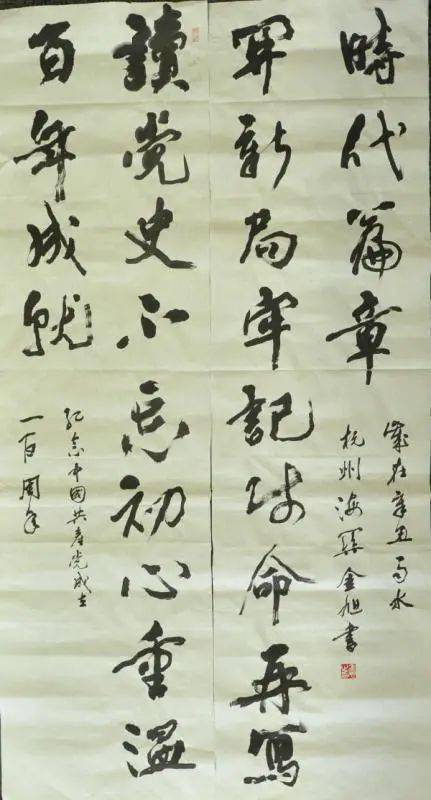 讀党史不忘初心重溫
百年成就
紀念中國共產党成立
一百周年
開新局牢記使命再寫
時代篇章
歲在辛丑雨水
杭州海關金旭書